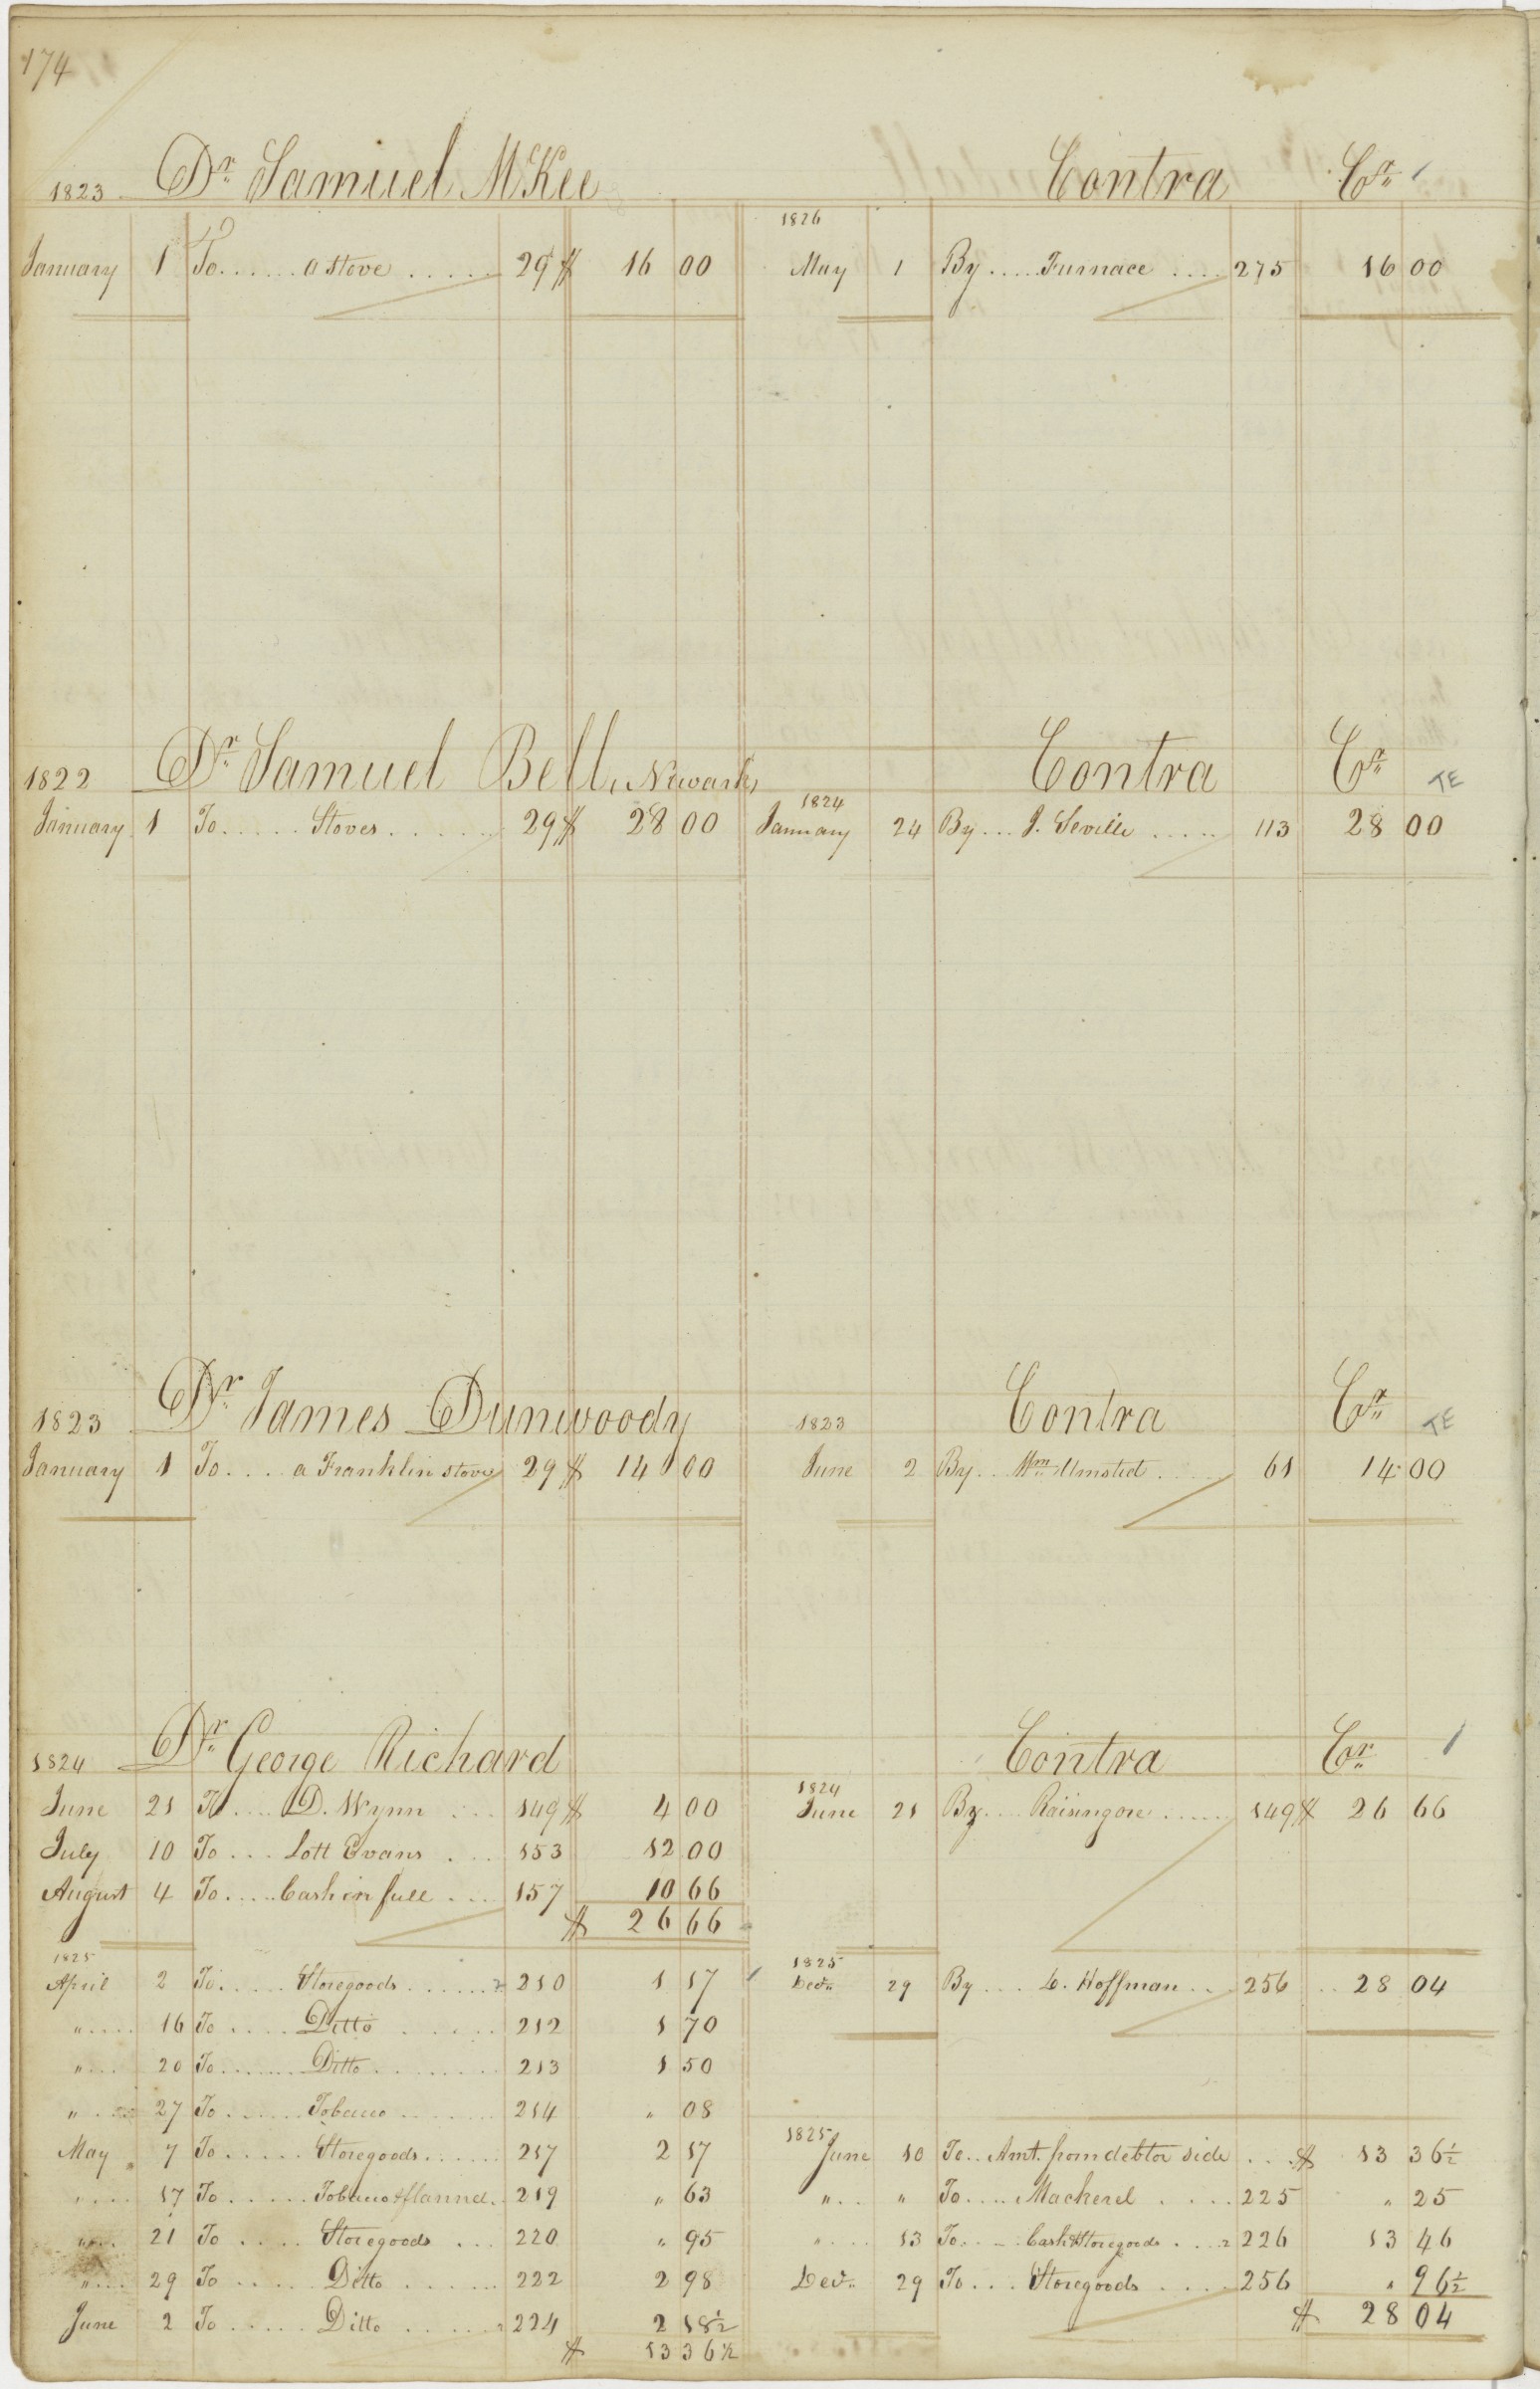 174
1823 Dr. Samuel McKee Contra Cr.
1826
January 1 To ...... a stove ..... 29 $ 16 00 May 1 By .... Furnace .... 275 16 00
1822 Dr. Samuel Bell, Newark, Contra Cr. TE
1824
January 1 To ..... Stoves ...... 29 $ 28 00 January 24 By ... J. Seville ..... 113 28 00
1823 Dr. James Dunwoody 1823 Contra Cr. TE
January 1 To .... a Franklin stove 29 $ 14 00 June 2 By .. Wm. Umsted ..... 61 14 00
1824 Dr. George Richard Contra Cr.
1824
June 21 To .... D. Wynn ... 149 $ 4 00 June 21 By .... Raisingore ..... 149 $ 26 66
July 10 To ... Lott Evans ... 153 12 00
August 4 To .... Cash in full ... 157 10 66
$ 26 66
1825 1825
April 2 To ..... Storegoods ...... 210 1 17 Decr. 29 By ... C. Hoffman ... 256 .. 28 04
" ..... 16 To .... Ditto ...... 212 1 70
" .... 20 To ...... Ditto ........ 213 1 50
" .... 27 To ...... Tobacco ....... 214 " 08
1825
May 7 To ..... Storegoods ...... 217 2 17 June 10 To .. Amt. from debtor side .... $ 13 36½
" .... 17 To ...... Tobacco & flannel. 219 " 63 " .. " To .... Mackerel ..... 225 " 25
" .... 21 To ..... Storegoods ... 220 " 95 " .... 13 To .... Cash & Storegoods .... 226 13 46
" .... 29 To ..... Ditto ...... 222 2 98 Decr. 29 To ... Storegoods .... 256 " 96½
June 2 To ..... Ditto ...... 224 2 18½ $ 28 04
$ 13 36½